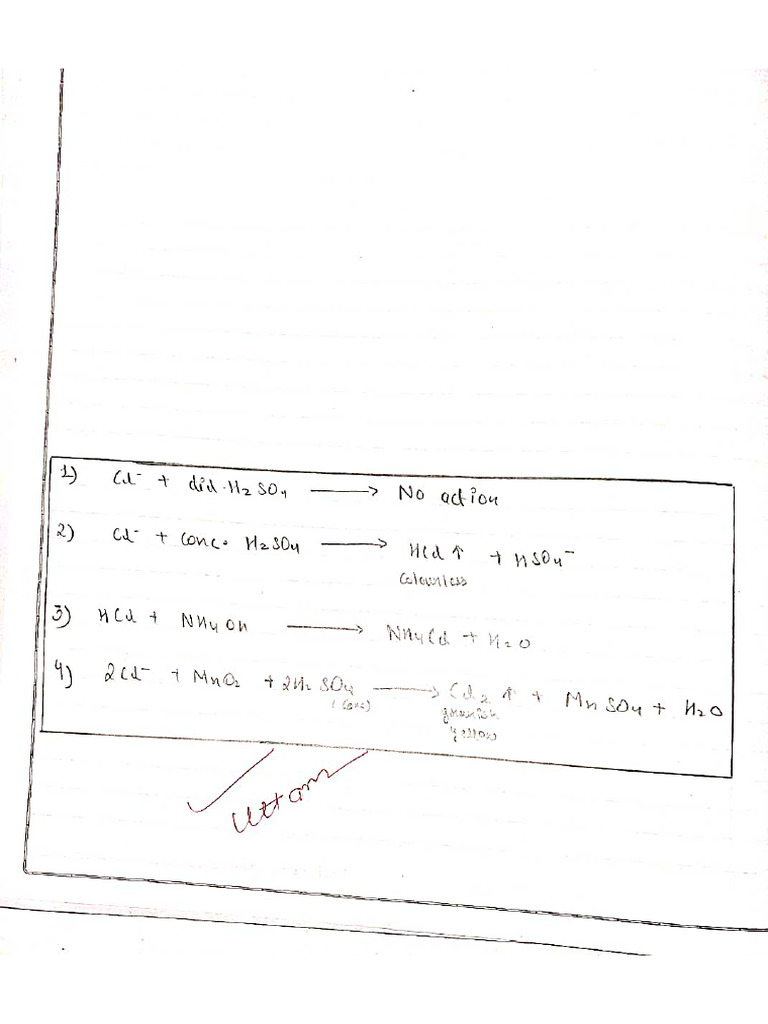 1) Cl⁻ + dil. H₂SO₄ ⟶ No action
2) Cl⁻ + conc. H₂SO₄ ⟶ HCl ↑ + HSO₄⁻
Colourless
3) HCl + NH₄OH ⟶ NH₄Cl + H₂O
4) 2Cl⁻ + MnO₂ + 2H₂SO₄ ⟶ Cl₂ ↑ + MnSO₄ + H₂O
(conc) greenish
yellow
Uttam